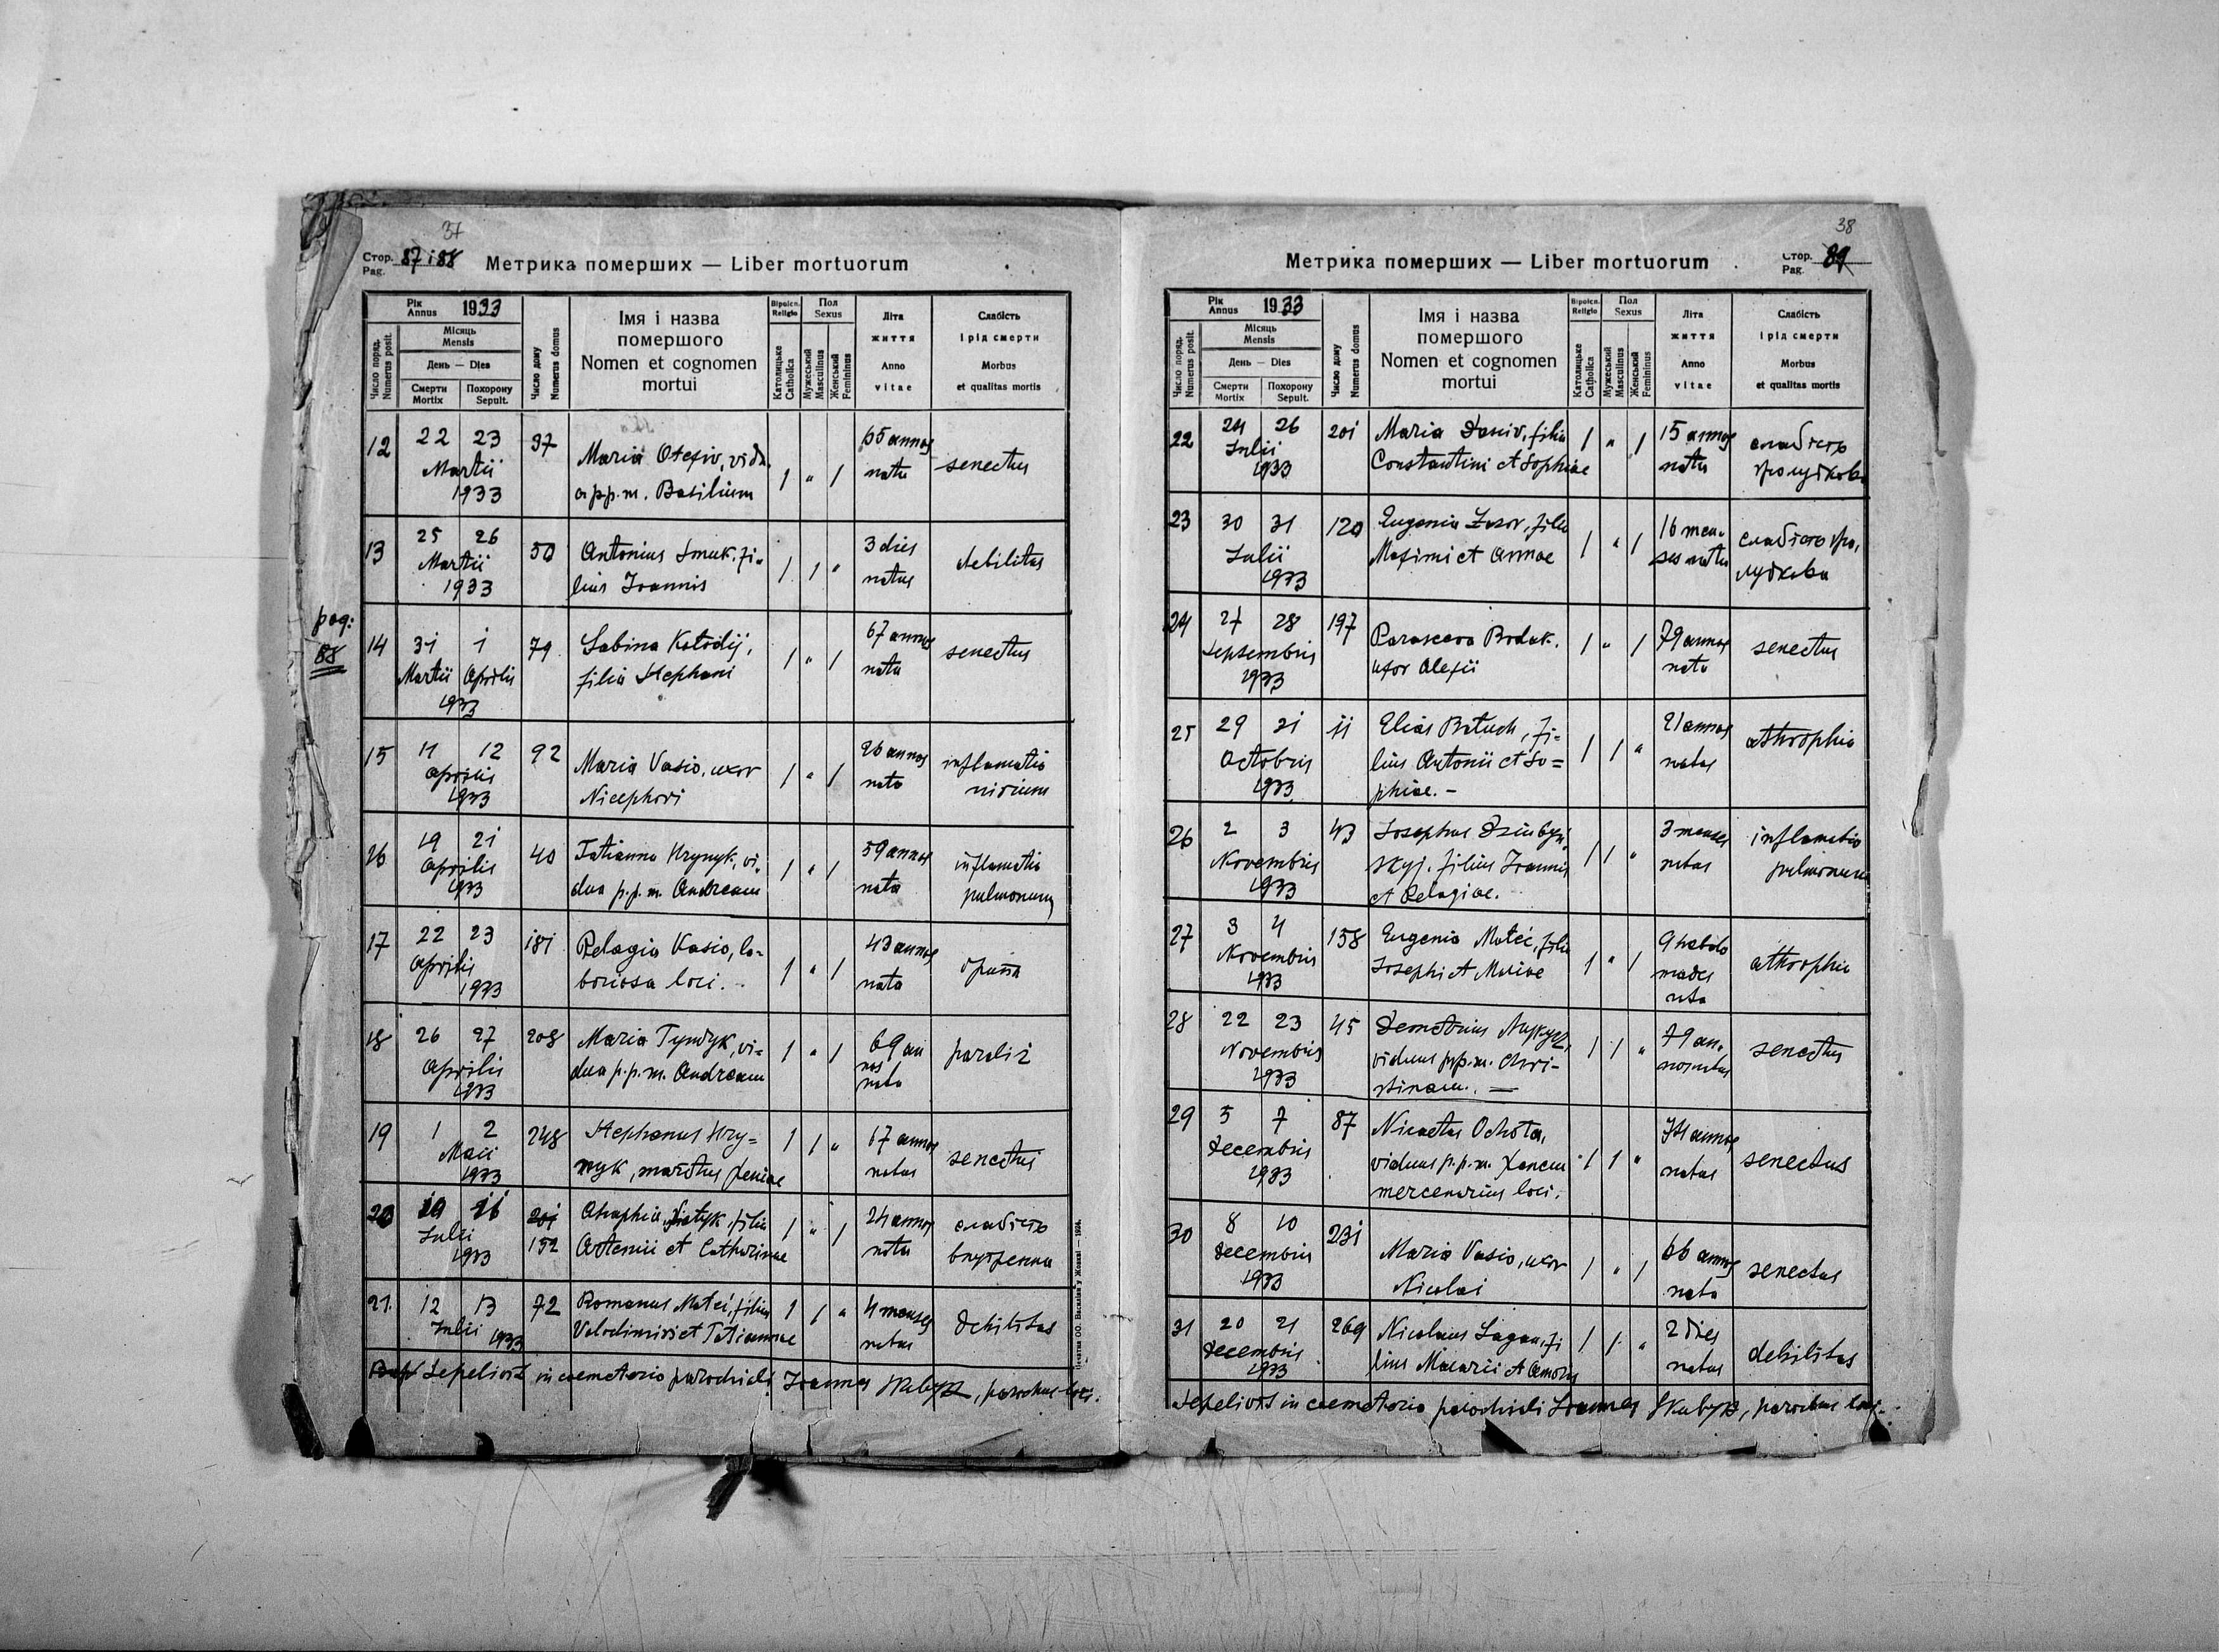 37
Стор. 87 i 88
Pag.
Метрика померших — Liber mortuorum
Рік 1933
Annus
Число поряд.
Numerus posit.
Місяць
Mensis
День — Dies
Смерти Похорону
Mortix Sepult.
Число дому
Numerus domus
Імя і назва
помершого
Nomen et cognomen
mortui
Віроісп.
Religio
Католицьке
Catholica
Пол
Sexus
Мужеський
Masculinus
Женський
Femininus
Літа
життя
Anno
vitae
Слабість
і рід смерти
Morbus
et qualitas mortis
12 22 23 37 65 annos
Martii Maria Otesiv, vidu, 1 " 1 nata senectus
1933 a p.p.m. Basilium
13 25 26 50 Antonius Smuk, fi- 3 dies
Martii 1 1 " natus debilitas
1933 lius Joannis
pag:
88
14 31 1 79 Sabina Kolodij, 1 " 1 67 annos senectus
Martii Aprilis filia Stephani nata
1933
15 11 12 92 Maria Vasio, uxor 1 " 1 26 annos inflamatio
Aprilis Nicephori nata
1933
16 19 21 40 Tatianna Hrynyk, vi- 1 " 1 59 annos inflamatio
Aprilis dua p.p.m. Andream nata pulmonum
1933
17 22 23 181 Pelagia Vasio, la- 1 " 1 43 annos
Aprilis boriosa loci. nata
1933
18 26 27 208 Maria Tymdyk, vi- 1 " 1 69 an paraliż
Aprilis dua p.p.m. Andream nos
1933 nata
19 1 2 248 Stephanus Hry- 1 1 " 67 annos senectus
Maii nyk, maritus Xeniae natus
1933
20 19 26 201 filia 1 " 1 24 annos слабість
Julii 152 Artemii et Catharinae nata внутренна
1933
21. 12 13 72 Romanus Matei, filius 1 1 " 4 menses debilitas
Julii 1933 Volodimiri et Tatiannae natus
Sepelivit in caemeterio parochiali Joannes Skabyk, parochus loci.
Печатня ОО. Василіян у Жовкві — 1924.
38
Метрика померших — Liber mortuorum
Стор. 89
Pag.
Рік 1933
Annus
Число поряд.
Numerus posit.
Місяць
Mensis
День — Dies
Смерти Похорону
Mortix Sepult.
Число дому
Numerus domus
Імя і назва
помершого
Nomen et cognomen
mortui
Віроісп.
Religio
Католицьке
Catholica
Пол
Sexus
Мужеський
Masculinus
Женський
Femininus
Літа
життя
Anno
vitae
Слабість
і рід смерти
Morbus
et qualitas mortis
22 24 26 201 Maria filia 1 " 1 15 annos слабість
Julii Constantini et Sophiae nata жолудкова
1933
23 30 31 120 Eugenia filia 1 " 1 16 men- слабість жо-
Julii Maximi et Annae ses nata лудкова
1933
24 27 28 197 Parasceva Bodak, 1 " 1 79 annos senectus
Septembris uxor Alexii nata
1933
25 29 31 11 Elias Batuch, fi- 1 1 " 21 annos athrophia
Octobris lius Antonii et So= natus
1933 phiae. -
26 2 3 43 Josephus Dziubyn- 1 1 " 3 menses inflamatio
Novembris skyj, filius Joannis natus pulmonum
1933 et Pelagiae.
27 3 4 158 Eugenia Matei, filia 1 " 1 9 hebdo athrophia
Novembris Josephi et Mariae mades
1933 nata
28 22 23 45 Demetrius 1 1 " 79 an- senectus
Novembris viduus p.p.m. Chri- nos natus
1933 stinam. =
29 5 7 87 Nicetas Ochota, 1 1 " 74 annos senectus
Decembris viduus p.p.m. Xeniam natus
1933 mercenarius loci.
30 8 10 231 Maria Vasio, uxor 1 " 1 66 annos senectus
Decembris Nicolai nata
1933
31 20 21 269 Nicolaus Lagan, fi 1 1 " 2 dies debilitas
Decembris lius Macarii et natus
1933
Sepelivit in caemeterio parochiali Joannes Skabyk, parochus loci.